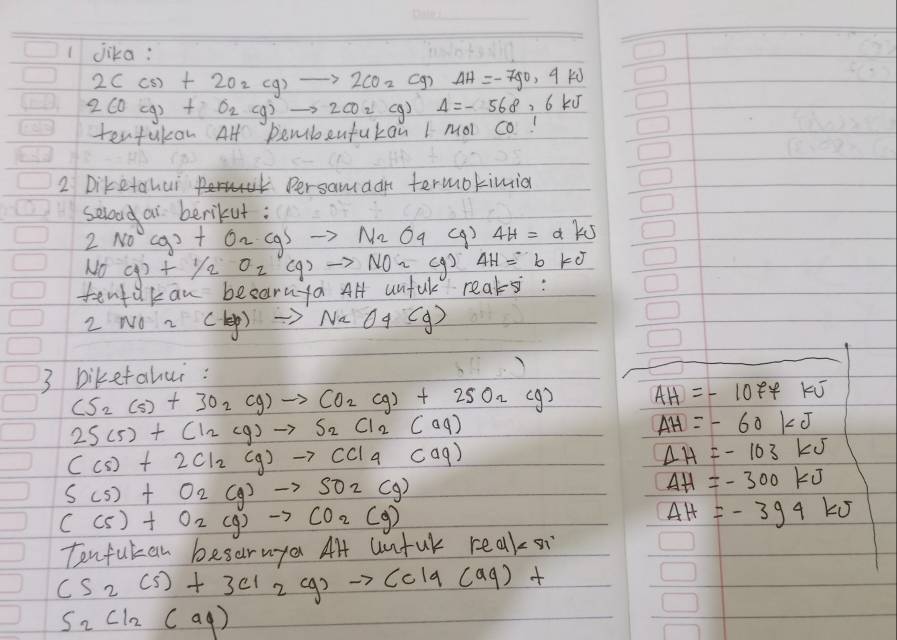 Date:
1 Jika :
2C (s) + 2O2 (g) → 2CO2 (g) ΔH = -790, 4 kJ
2CO (g) + O2 (g) → 2CO2 (g) Δ = - 568, 6 kJ
tentukan ΔH Pembentukan 1 mol CO !
2 Diketahui Persamaan termokimia
sebagai berikut :
2 NO (g) + O2 (g) → N2 O4 (g) ΔH = a kJ
NO (g) + 1/2 O2 (g) → NO2 (g) ΔH = b kJ
tentukan besarnya ΔH untuk reaksi :
2 NO 2 (g) → N2 O4 (g)
3 Diketahui :
CS2 (s) + 3O2 (g) → CO2 (g) + 2SO2 (g) ΔH = - 1077 kJ
2S(s) + Cl2 (g) → S2 Cl2 (aq) ΔH = - 60 kJ
C (s) + 2Cl2 (g) → CCl4 (aq) ΔH = - 103 kJ
S (s) + O2 (g) → SO2 (g) ΔH = - 300 kJ
C (s) + O2 (g) → CO2 (g) ΔH = - 394 kJ
Tentukan besarnya ΔH untuk reaksi
CS2 (s) + 3Cl 2 (g) → CCl4 (aq) +
S2 Cl2 (aq)